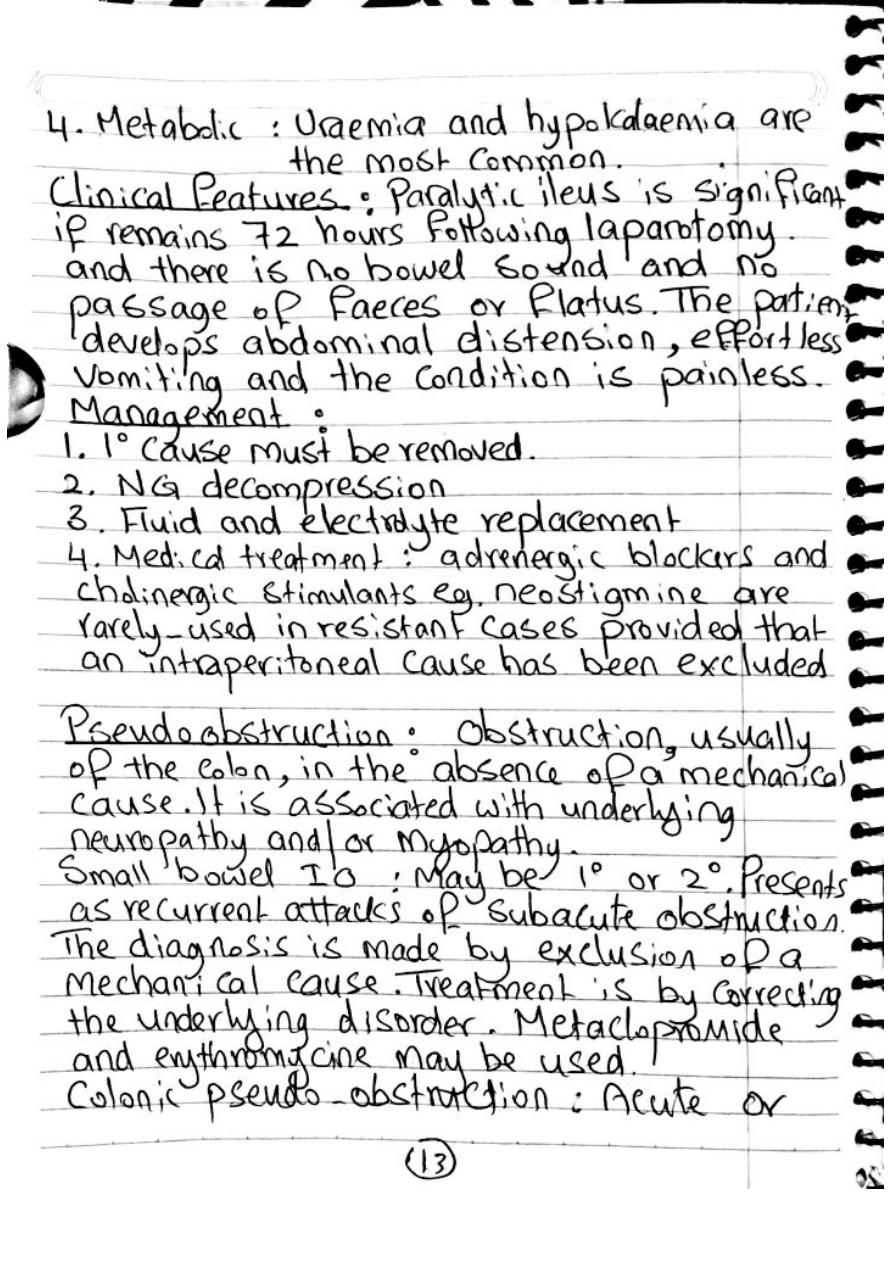 4. Metabolic : Uraemia and hypokalaemia are
the most Common.
Clinical Features : Paralytic ileus is significant
if remains 72 hours following laparotomy.
and there is no bowel sound and no
passage of faeces or flatus. The patient
develops abdominal distension, effortless
vomiting and the condition is painless.
Management :
1. 1° cause must be removed.
2. NG decompression
3. Fluid and electrolyte replacement
4. Medical treatment : adrenergic blockers and
cholinergic stimulants eg. neostigmine are
rarely-used in resistant cases provided that
an intraperitoneal cause has been excluded
Pseudoobstruction : Obstruction, usually
of the colon, in the absence of a mechanical
cause. It is associated with underlying
neuropathy and/or Myopathy.
Small bowel IO : May be 1° or 2°. Presents
as recurrent attacks of subacute obstruction.
The diagnosis is made by exclusion of a
Mechanical cause. Treatment is by correcting
the underlying disorder. Metaclopromide
and erythromycine may be used.
Colonic pseudo-obstruction : Acute or
13